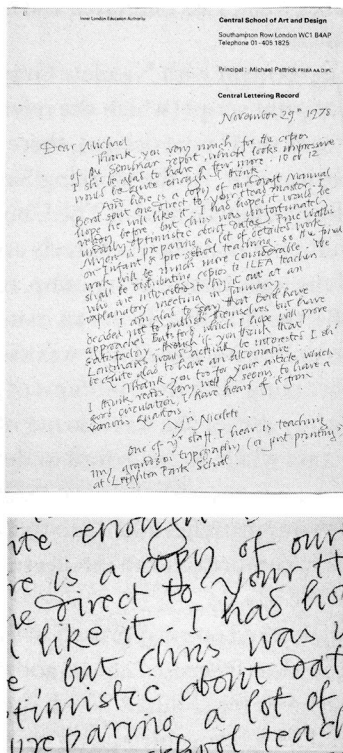 Inner London Education Authority
Central School of Art and Design
Southampton Row London WC1 B4AP
Telephone 01-405 1825
Principal: Michael Pattrick FRIBA AA DIPL
Central Lettering Record
November 29th 1978
Dear Michael
Thank you very much for the copies
of the Seminar report, which looks impressive
I shd be glad to have a few more. 10 or 12
would be quite enough I think.
And here is a copy of our Manual
sent one direct to your
hope he will like it. I had hoped it would be
ready before, but Chris was unfortunately
optimistic about dates.
is preparing a lot of details
on Infant & pre-school teaching, so the
work will be much more comprehensive. We
shall be distributing copies to ILEA teachers
who are interested to try it out at an
explanatory meeting in January.
I am glad to say that both have
decided not to publish themselves but have
approached Batsford, which I hope will prove
satisfactory, though if you think that
Longmans would actually be interested I shd
be quite glad to have an alternative.
Thank you too for your article, which
I think reads very well & seems to have a
good circulation, I have heard of it from
various quarters.
Nicolete
One of yr staff I hear is teaching
my grandson typography (or just printing)
at Leighton Park School
ite enough
re is a copy of our
e direct to your
like it. I had ho
e but Chris was
timistic about dat
preparing a lot of
school teach